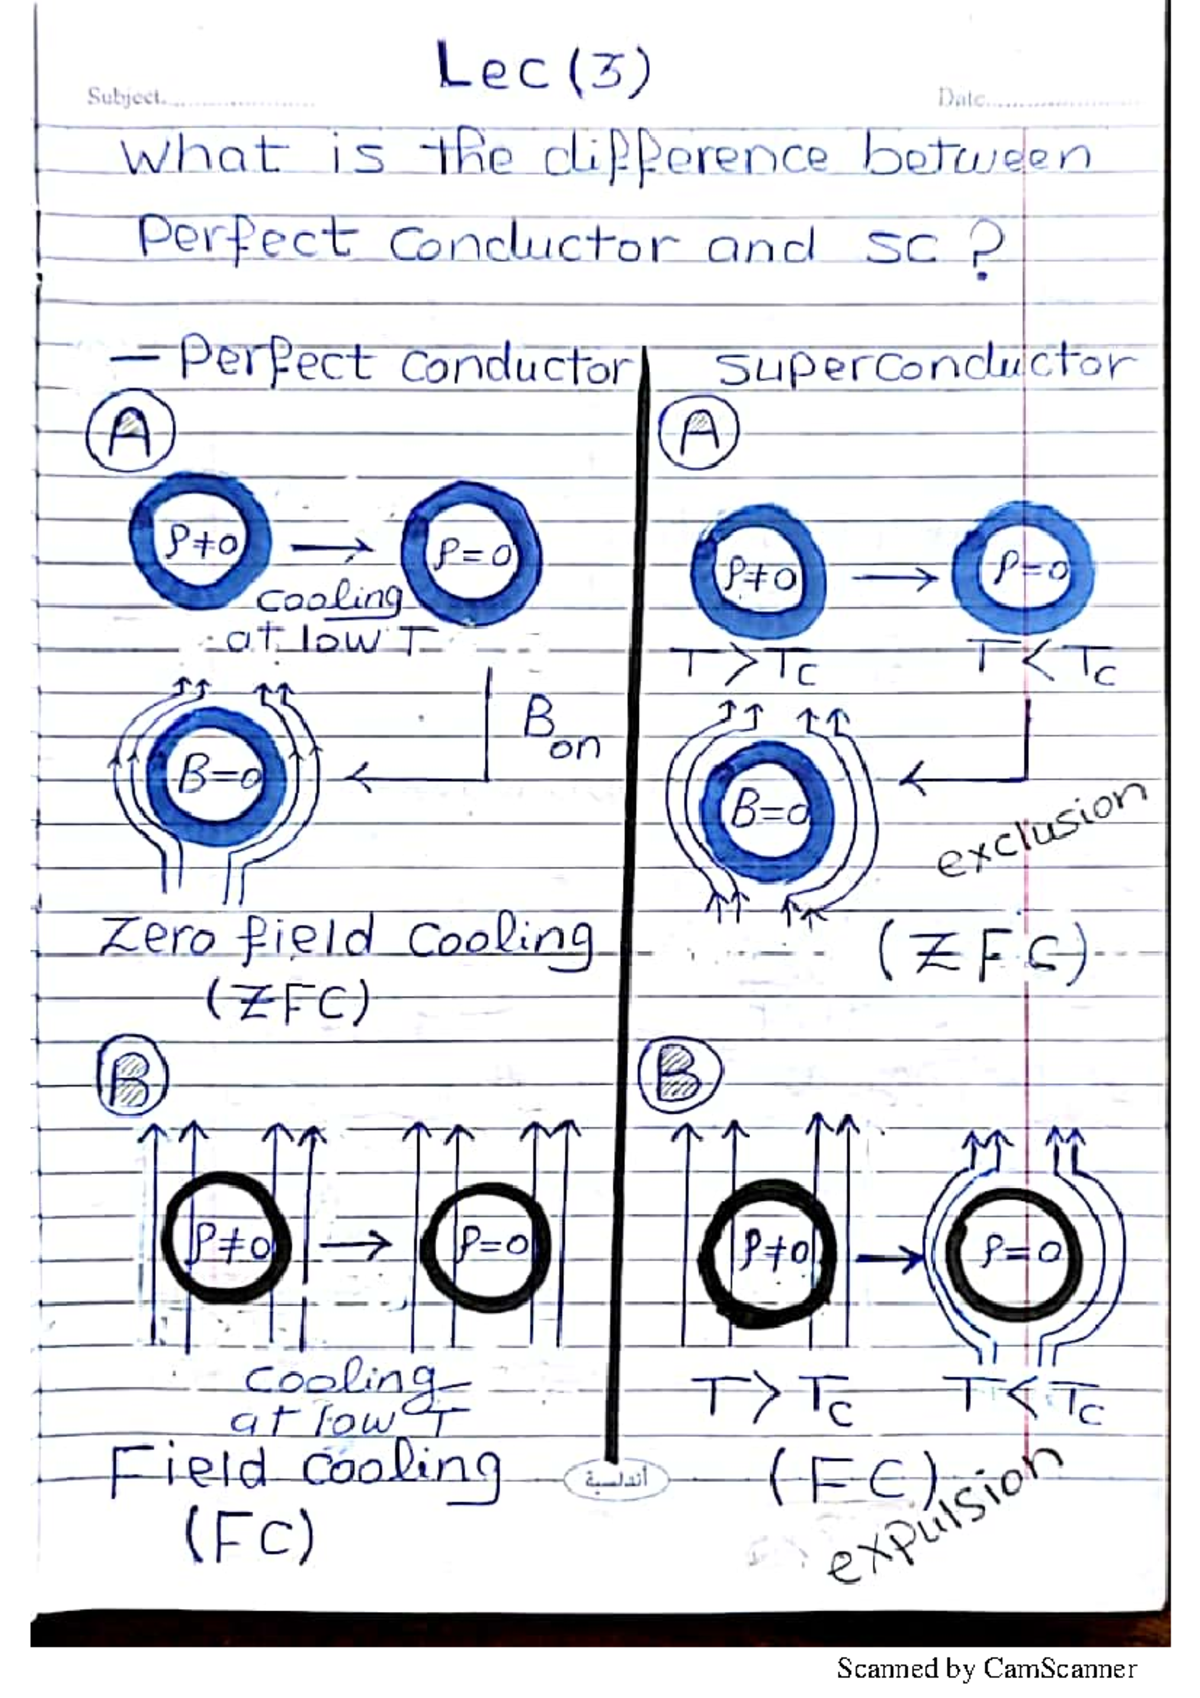 Lec (3)
Subject
Date
What is the difference between
Perfect conductor and SC ?
— Perfect conductor
A
ρ≠0
ρ=0
cooling
at low T
B=0
B on
Zero field cooling
(ZFC)
B
ρ≠0
ρ=0
cooling
at low T
Field cooling
(FC)
superconductor
A
ρ≠0
ρ=0
T > Tc
T < Tc
B=0
exclusion
(ZFC)
B
ρ≠0
ρ=0
T > Tc
T < Tc
(FC)
expulsion
أندلسية
Scanned by CamScanner